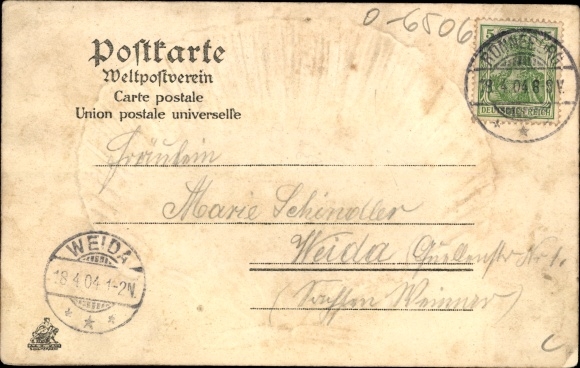 0-6506
5
Postkarte
Weltpostverein
Carte postale
Union postale universelle
RONNEBURG
18.4.04.6-8V.
DEUTSCHES REICH
Fräulein
Marie Schindler
Weida (Quellenstr. No 1.
(Sachsen Weimar)
WEIDA
18.4.04.1-2N.